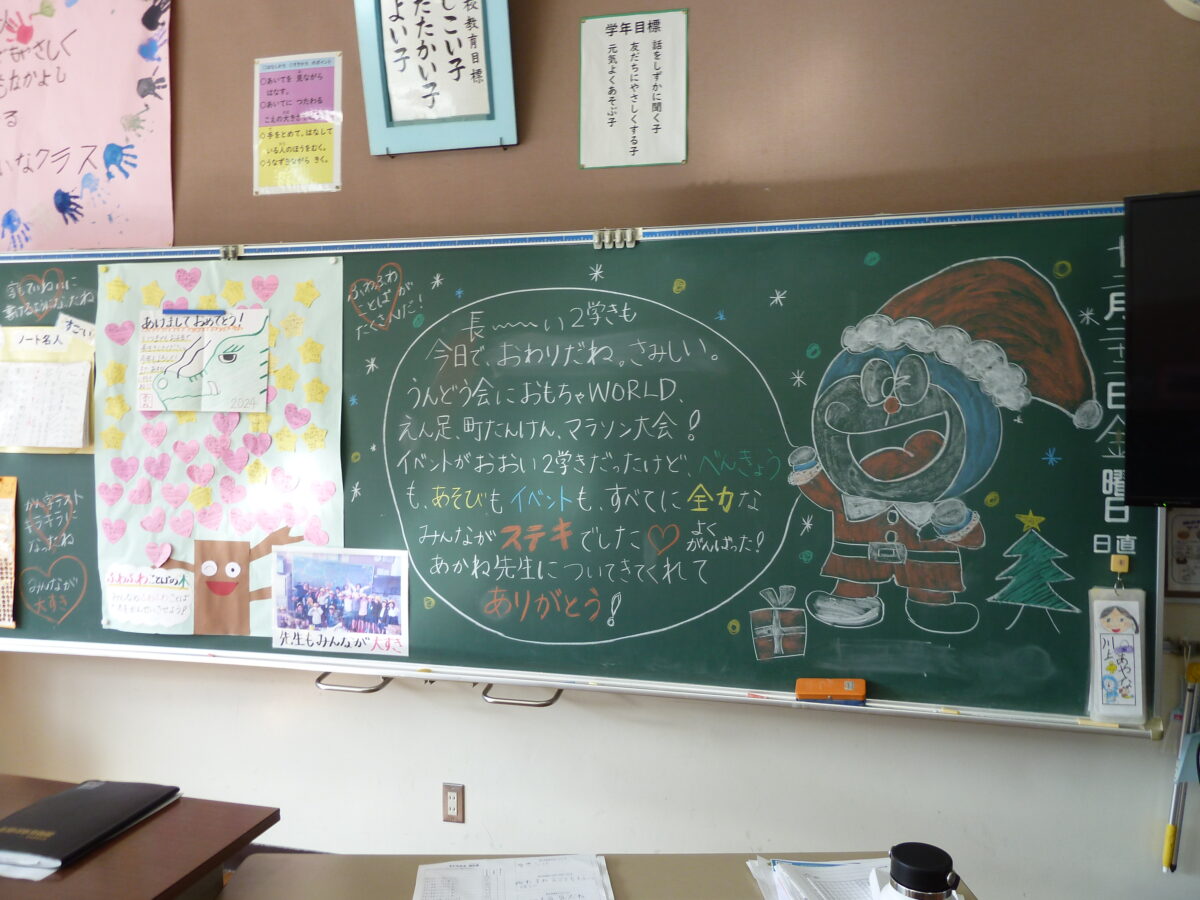 もやさしく
もなかよし
る
いなクラス
○あいてを 見ながら
はなす。
○あいてに つたわる
こえの大き
◇手をとめて、はなして
いる人のほうをむく。
◇うなずきながら きく。
校教育目標
しこい子
たたかい子
よい子
学年目標
話をしずかに聞く子
友だちにやさしくする子
元気よくあそぶ子
書けるようになったね
すごい
ノート名人
漢字テスト
キラキラに
なったね
みんなが
大すき
あけましておめでとう!
2024
ふわふわことばの木
先生もみんなが大すき
ふわふわ
ことばが
たくさんだ!
長〜〜い2学きも
今日で、おわりだね。さみしい。
うんどう会におもちゃWORLD、
えん足、町たんけん、マラソン大会!
イベントがおおい2学きだったけど、べんきょう
も、あそびもイベントも、すべてに全力な
みんながステキでした♡よくがんばった!
あかね先生についてきてくれて
ありがとう!
十二月二十二日金曜日
日直
川上
あやな